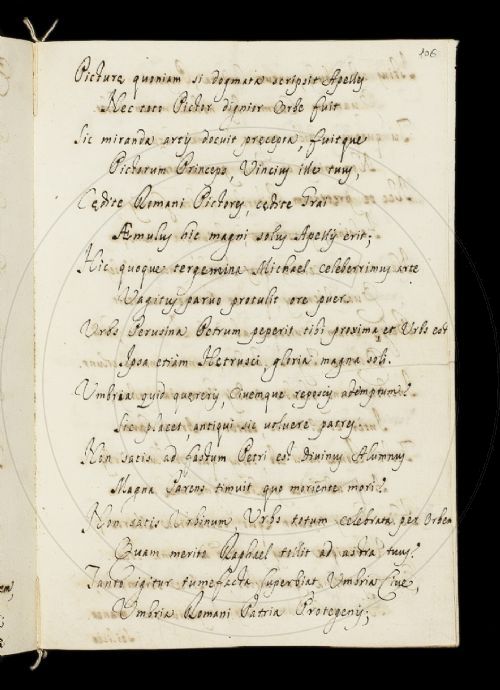 106
Picturæ quoniam si dogmata scripsit Apelles
Nec toto Pictor dignior Orbe fuit
Sic miranda artis docuit præcepta, fuitque
Pictorum Princeps, Vincius ille tuus,
Cędite Romani Pictores, cędite Graí
Æmulus hic magni solus Apellis erit;
Hic quoque tergemina Michael celeberrimus arte
Vagitus paruo protulit ore puer.
Vrbs Perusina Petrum peperit tibi proxima, et Vrbs est
Ipsa etiam Hetrusci gloria magna soli.
Vmbria quid quereris, Ciuemque reposcis ademptum?
Sic placet, antiqui sic uoluere patres.
Non satis ad fastum Petri est Diuinus Alumnus
Magna Parens timuit quo moriente mori?
Non satis Vrbinum, Vrbs totum celebrata per Orbem
Quam merito Raphael tollit ad astra tuus?
Tanto igitur tumefacta superbiat Vmbria Ciue,
Vmbria Romani Patria Protogenis;